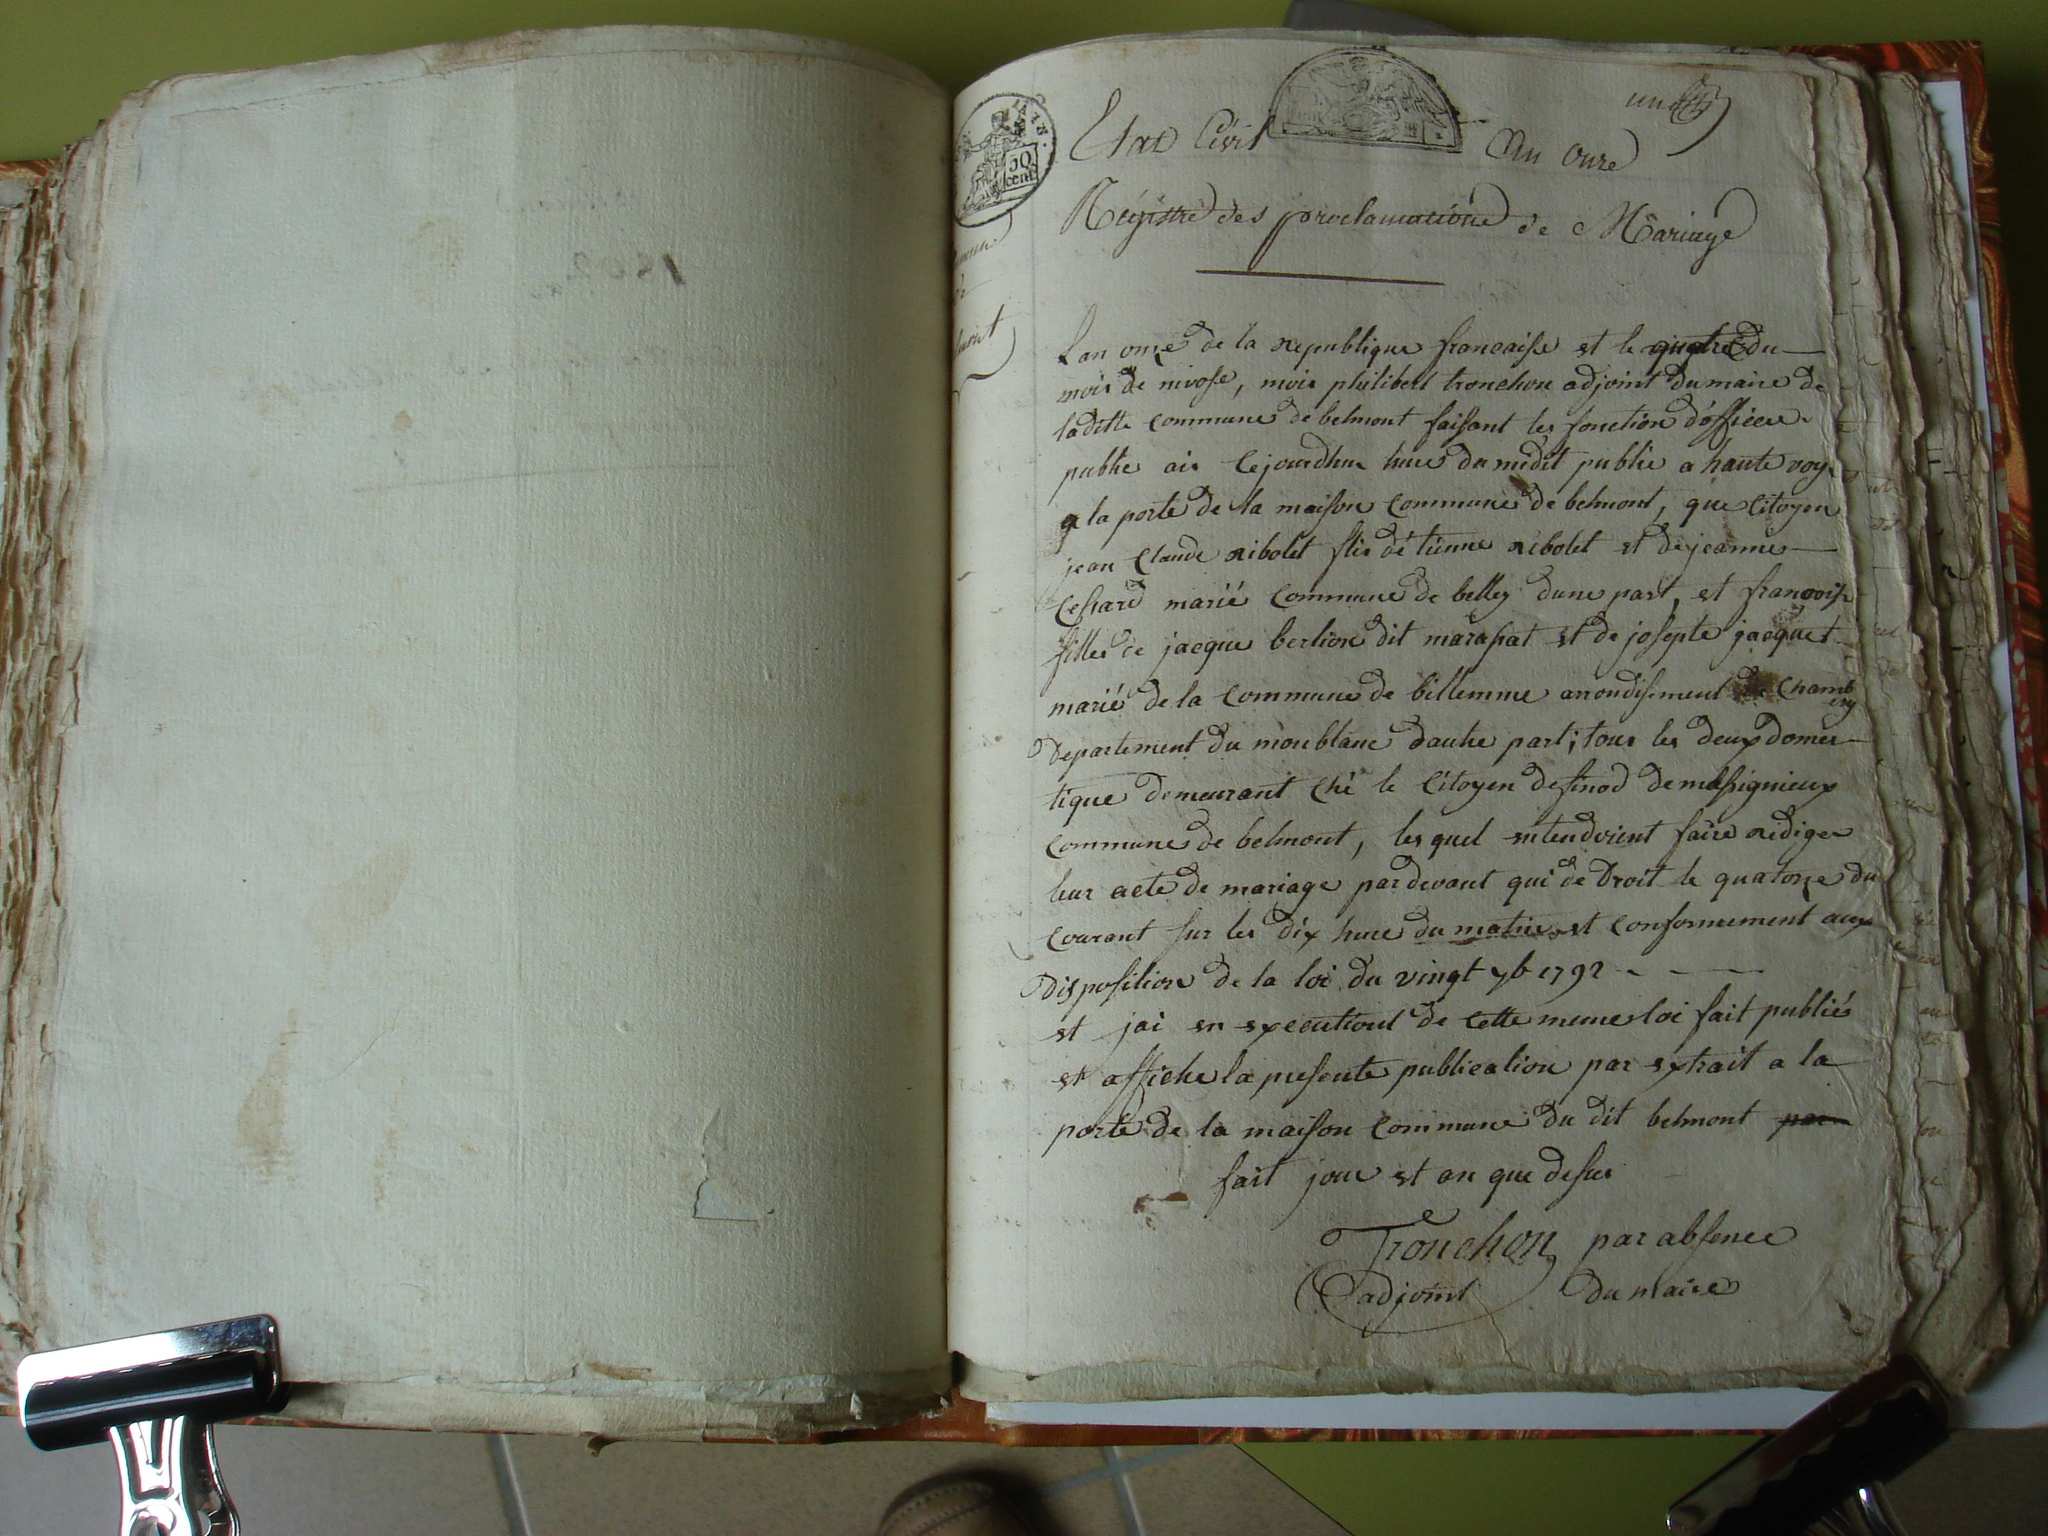 1802
AIN.
50
cent
un
Etat Civil
An onze
Régistre des proclamations de Mariage
Lan onze de la republique francaise et le quatre du
mois de nivose, mois philibert tronchon adjoint du maire de
ladille commune de belmont faisant les fonction d'officier
public ais cejourdhui hure du midit publie a haute voy
a la porte de la maison commune de belmont, que Citoyen
jean Claude ribolet flis détienne ribolet et de jeanne
marié commune de belley dune part, et francoise
filles de jacque berlion dit marapat et de josepte jacquet
marié de la commune de billemme arrondisement de Chamb
ery
Departement du monblanc dautre part; tous les deux domes
tique demeurant ché le Citoyen desinod de massignieux
commune de belmont, les quel entendoient faire rediger
leur acte de mariage par devant qui de droit le quatorze du
courant sur les dix hure du matin et conformement aux
disposition de la loi du vingt 7b 1792
et jai en executiont de cette meme loi fait publiés
et affiche la presente publication par extrait a la
porte de la maison commune du dit belmont par
fait jour et an que desus
Tronchon par absence
adjoint du maire